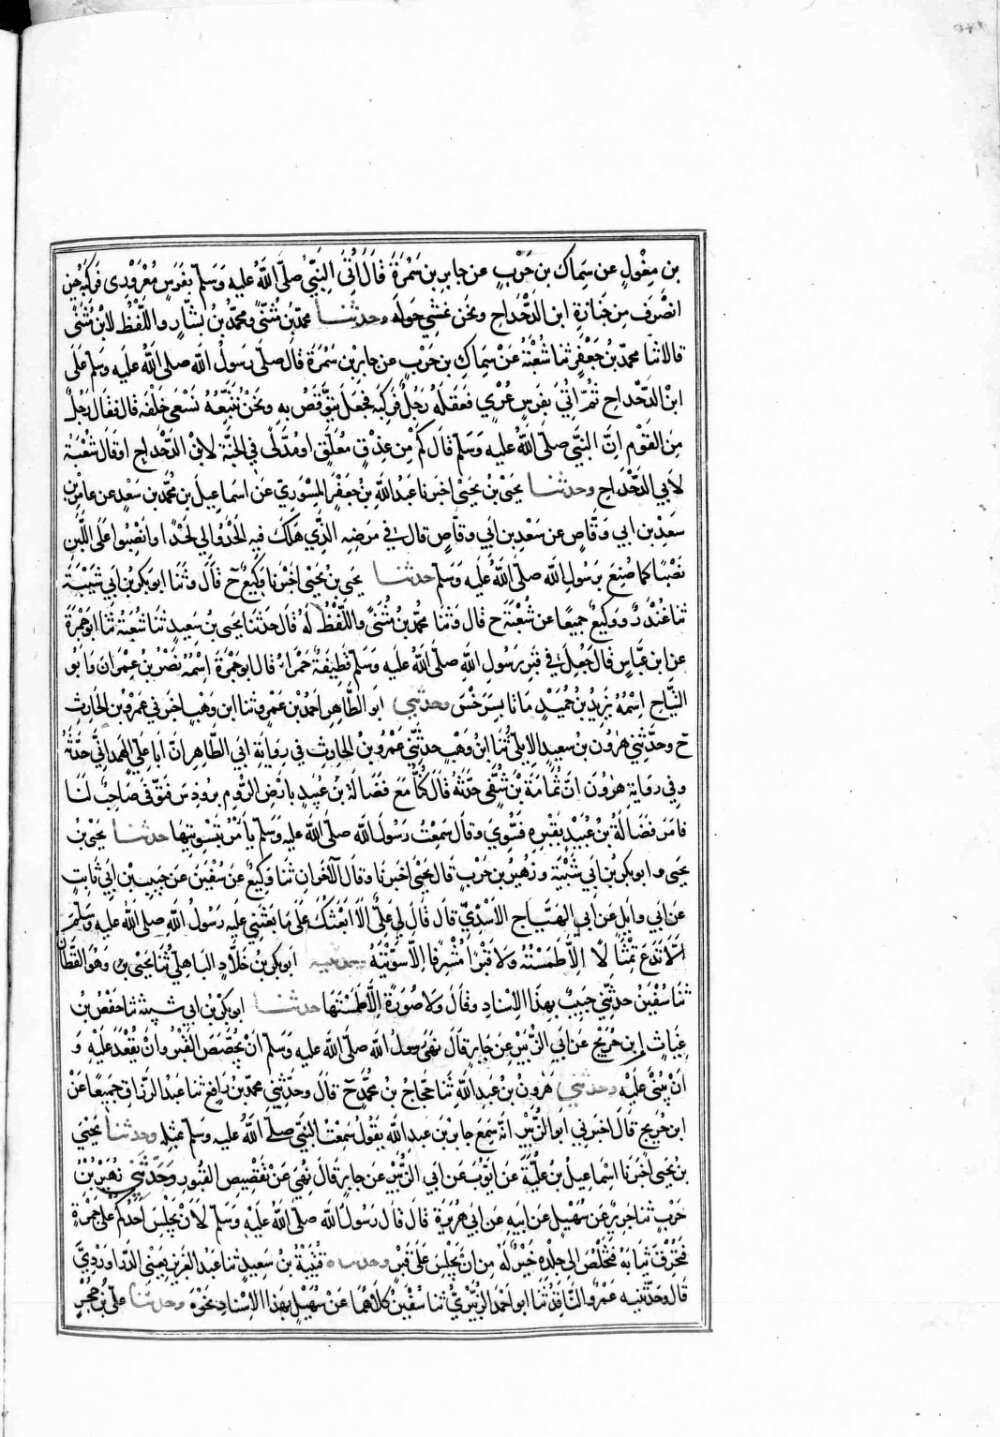 بن مِغْوَلٍ عن سِمَاك بن حَرْبٍ عن جابر بن سَمُرَة قال اُتِىَ النبيُّ صلى الله عليه وسلم بفرسٍ مُعْرَوْرًى فركبه حين
انصرف من جنازة ابن الدَّحْداح ونحن نمشي حوله وحدثنا محمد بن مُثنّى ومحمد بن بشّارٍ واللفظ لابن مُثنّى
قالا ثنا محمد بن جعفر ثنا شعبة عن سِمَاك بن حرب عن جابر بن سمرة قال صلى رسول الله صلى الله عليه وسلم على
ابن الدَّحْداح ثم اُتي بفرسٍ عُرْيٍ فعقله رجلٌ فركبه فجعل يتوقَّص به ونحن نتّبعه نسعى خلفه قال فقال رجلٌ
من القوم انّ النبي صلى الله عليه وسلم قال كم من عِذْقٍ مُعلَّقٍ او مُدَلًّى في الجنة لابن الدَّحْداح او قال شعبة
لابي الدَّحْداح وحدثنا يحيى بن يحيى اخبرنا عبد الله بن جعفر المِسْوَري عن اسماعيل بن محمد بن سعد عن عامر بن
سعد بن ابي وقّاص عن سعد بن ابي وقّاص قال في مرضه الذي هلك فيه الحدوا لي لحدًا وانصبوا عليّ اللبن
نصبًا كما صُنع برسول الله صلى الله عليه وسلم حدثنا يحيى بن يحيى اخبرنا وكيع ح قال وثنا ابو بكر بن ابي شيبة
ثنا غُنْدَرٌ ووكيعٌ جميعًا عن شعبة ح قال وثنا محمد بن مُثنّى واللفظ له قال حدثنا يحيى بن سعيد ثنا شعبة ثنا ابو جمرة
عن ابن عباس قال جُعل في قبر رسول الله صلى الله عليه وسلم قطيفةٌ حمراءُ قال ابو جمرة اسمه نصر بن عمران وابو
التيّاح اسمه يزيد بن حُميد ماتا بسرخس وحدثني ابو الطاهر احمد بن عمرو ثنا ابن وهب اخبرني عمرو بن الحارث
ح وحدثني هرون بن سعيد الايلي ثنا ابن وهب حدثني عمرو بن الحارث في رواية ابي الطاهر ان ابا علي الهمداني حدّثه
وفي رواية هرون ان ثمامة بن شُفَيّ حدّثه قال كنّا مع فضالة بن عُبيد بارض الروم برودس فتوفي صاحبٌ لنا
فامر فضالة بن عبيد بقبره فسُوّي وقال سمعت رسول الله صلى الله عليه وسلم يامر بتسويتها حدثنا يحيى بن
يحيى وابو بكر بن ابي شيبة وزهير بن حربٍ قال يحيى اخبرنا وقال الآخران ثنا وكيع عن سفين عن حبيب بن ابي ثابت
عن ابي وايل عن ابي الهيّاج الاسدي قال قال لي عليٌّ الا ابعثك على ما بعثني عليه رسول الله صلى الله عليه وسلم
ان لا تدع تمثالًا الا طمسته ولا قبرًا مشرفًا الا سوّيته ابو بكر بن خلّاد الباهلي ثنا يحيى بن وهو القطان
ثنا سفين حدثني حبيبٌ بهذا الاسناد وقال ولا صورة الا طمستها حدثنا ابو بكر بن ابي شيبة ثنا حفص بن
غياث ابن جُريج عن ابي الزبير عن جابر قال نهى رسول الله صلى الله عليه وسلم ان يُجصَّص القبر وان يُقعد عليه و
ان يُبنى عليه وحدثني هرون بن عبد الله ثنا حجاج بن محمد ح قال وحدثني محمد بن رافع ثنا عبد الرزاق جميعا عن
ابن جُريج قال اخبرني ابو الزبير انه سمع جابر بن عبد الله يقول سمعت النبي صلى الله عليه وسلم بمثله وحدثنا يحيى
بن يحيى اخبرنا اسماعيل بن عليّة عن ايوب عن ابي الزبير عن جابر قال نُهي عن تقصيص القبور وحدثني زهير بن
حرب ثنا جرير عن سهيل عن ابيه عن ابي هريرة قال قال رسول الله صلى الله عليه وسلم لان يجلس احدكم على جمرةٍ
فتحرق ثيابه فتخلص الى جلده خيرٌ له من ان يجلس على قبرٍ وحدثناه قتيبة بن سعيد ثنا عبد العزيز يعني الدراوردي
قال وحدثنيه عمرو الناقد ثنا ابو احمد الزبيري ثنا سفين كلاهما عن سهيل بهذا الاسناد نحوه وحدثنا علي بن حجر